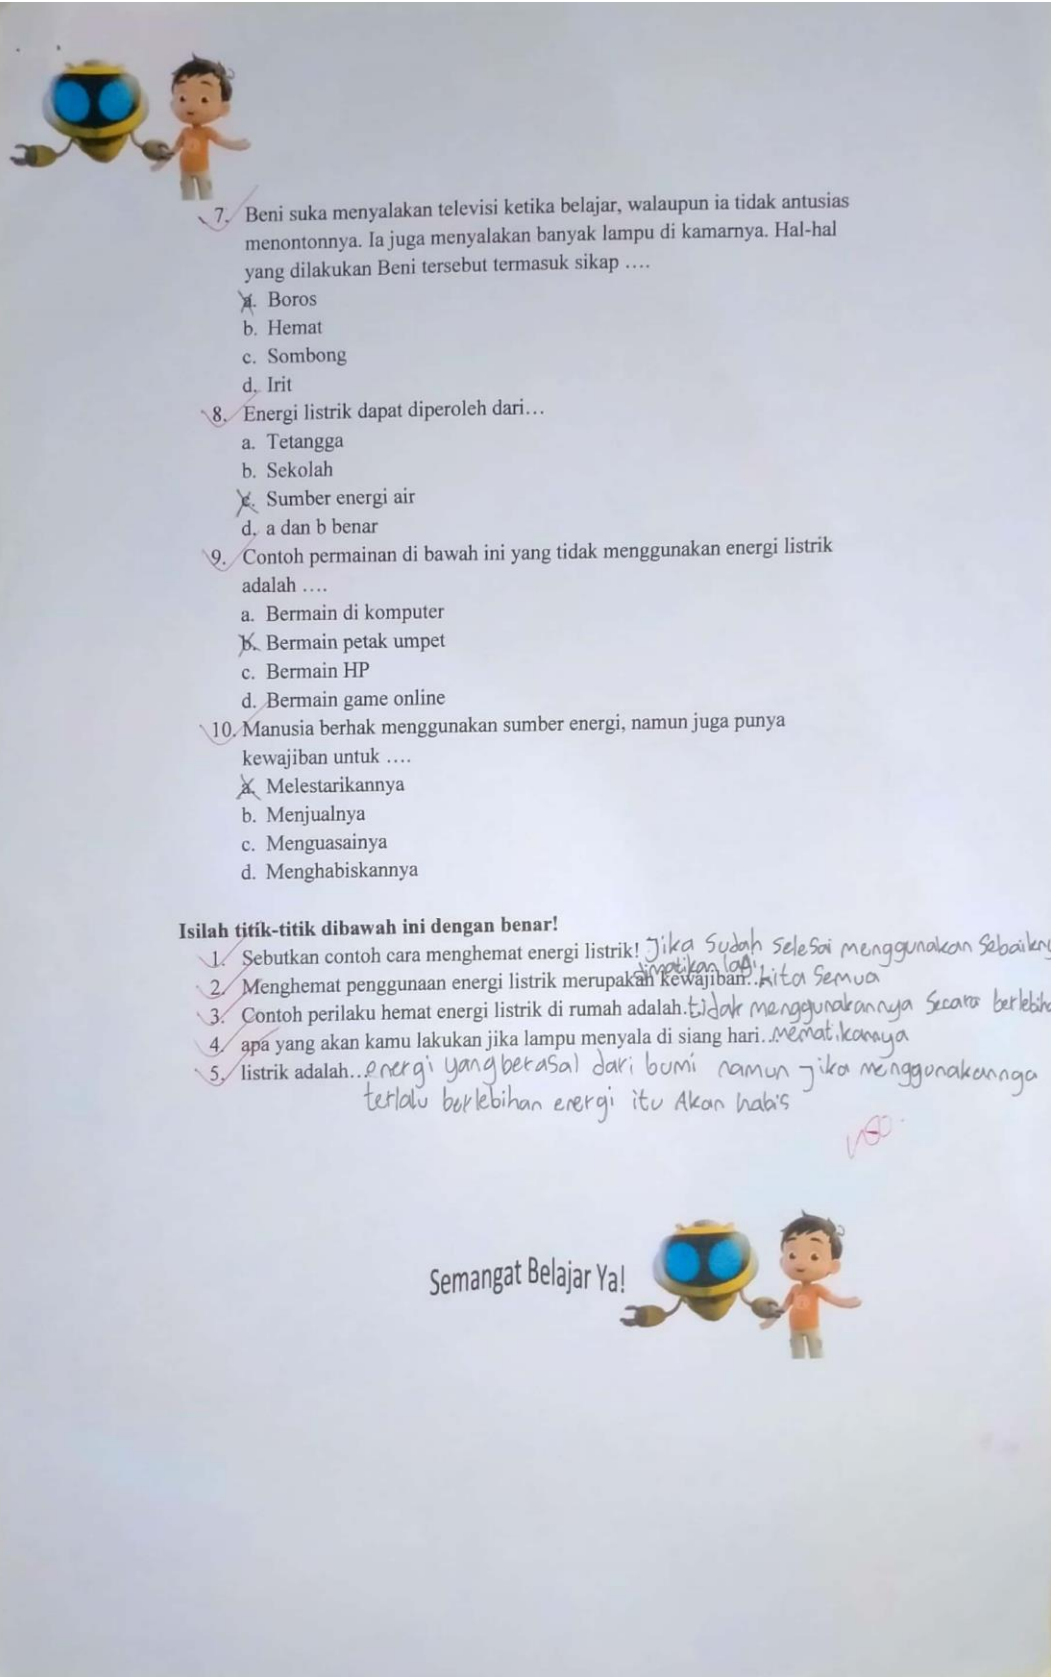 7. Beni suka menyalakan televisi ketika belajar, walaupun ia tidak antusias
menontonnya. Ia juga menyalakan banyak lampu di kamarnya. Hal-hal
yang dilakukan Beni tersebut termasuk sikap ....
a. Boros
b. Hemat
c. Sombong
d. Irit
8. Energi listrik dapat diperoleh dari...
a. Tetangga
b. Sekolah
c. Sumber energi air
d. a dan b benar
9. Contoh permainan di bawah ini yang tidak menggunakan energi listrik
adalah ....
a. Bermain di komputer
b. Bermain petak umpet
c. Bermain HP
d. Bermain game online
10. Manusia berhak menggunakan sumber energi, namun juga punya
kewajiban untuk ....
a. Melestarikannya
b. Menjualnya
c. Menguasainya
d. Menghabiskannya
Isilah titik-titik dibawah ini dengan benar!
1. Sebutkan contoh cara menghemat energi listrik! Jika sudah selesai menggunakan
dimatikan lagi
2. Menghemat penggunaan energi listrik merupakan kewajiban...kita semua
3. Contoh perilaku hemat energi listrik di rumah adalah.tidak menggunakannya secara
4. apa yang akan kamu lakukan jika lampu menyala di siang hari...mematikannya
5. listrik adalah...energi yang berasal dari bumi namun jika menggonakannga
terlalu berlebihan energi itu Akan habis
Semangat Belajar Ya!